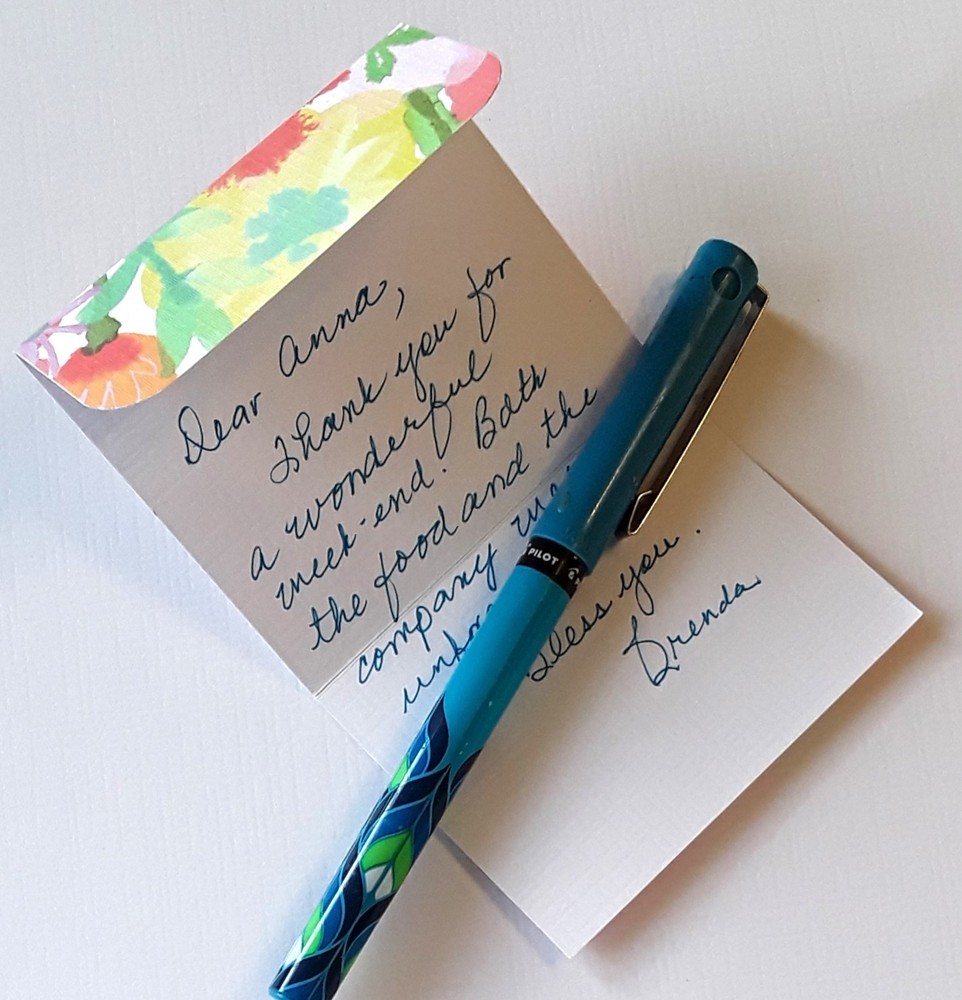 Dear Anna,
Thank you for
a wonderful
week-end. Both
the food and the
company
Bless you.
Brenda
PILOT